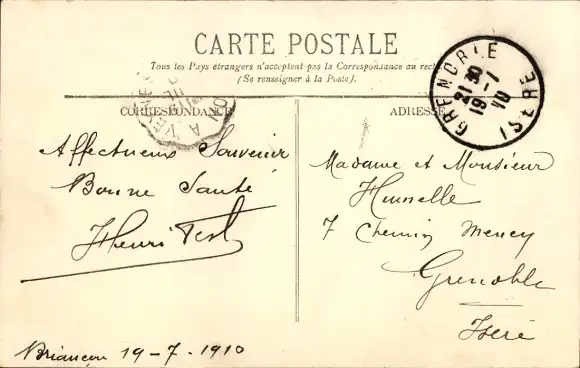 CARTE POSTALE
Tous les Pays étrangers n'acceptent pas la Correspondance au rect
(Se renseigner à la Poste).
GRENOBLE
21 30
19 -7
10
ISERE
CORRESPONDANCE
ADRESSE
Affectueux Souvenir
Bonne Santé
Henri
Madame et Monsieur
7 Chemin
Grenoble
Isère
Briançon 19-7-1910